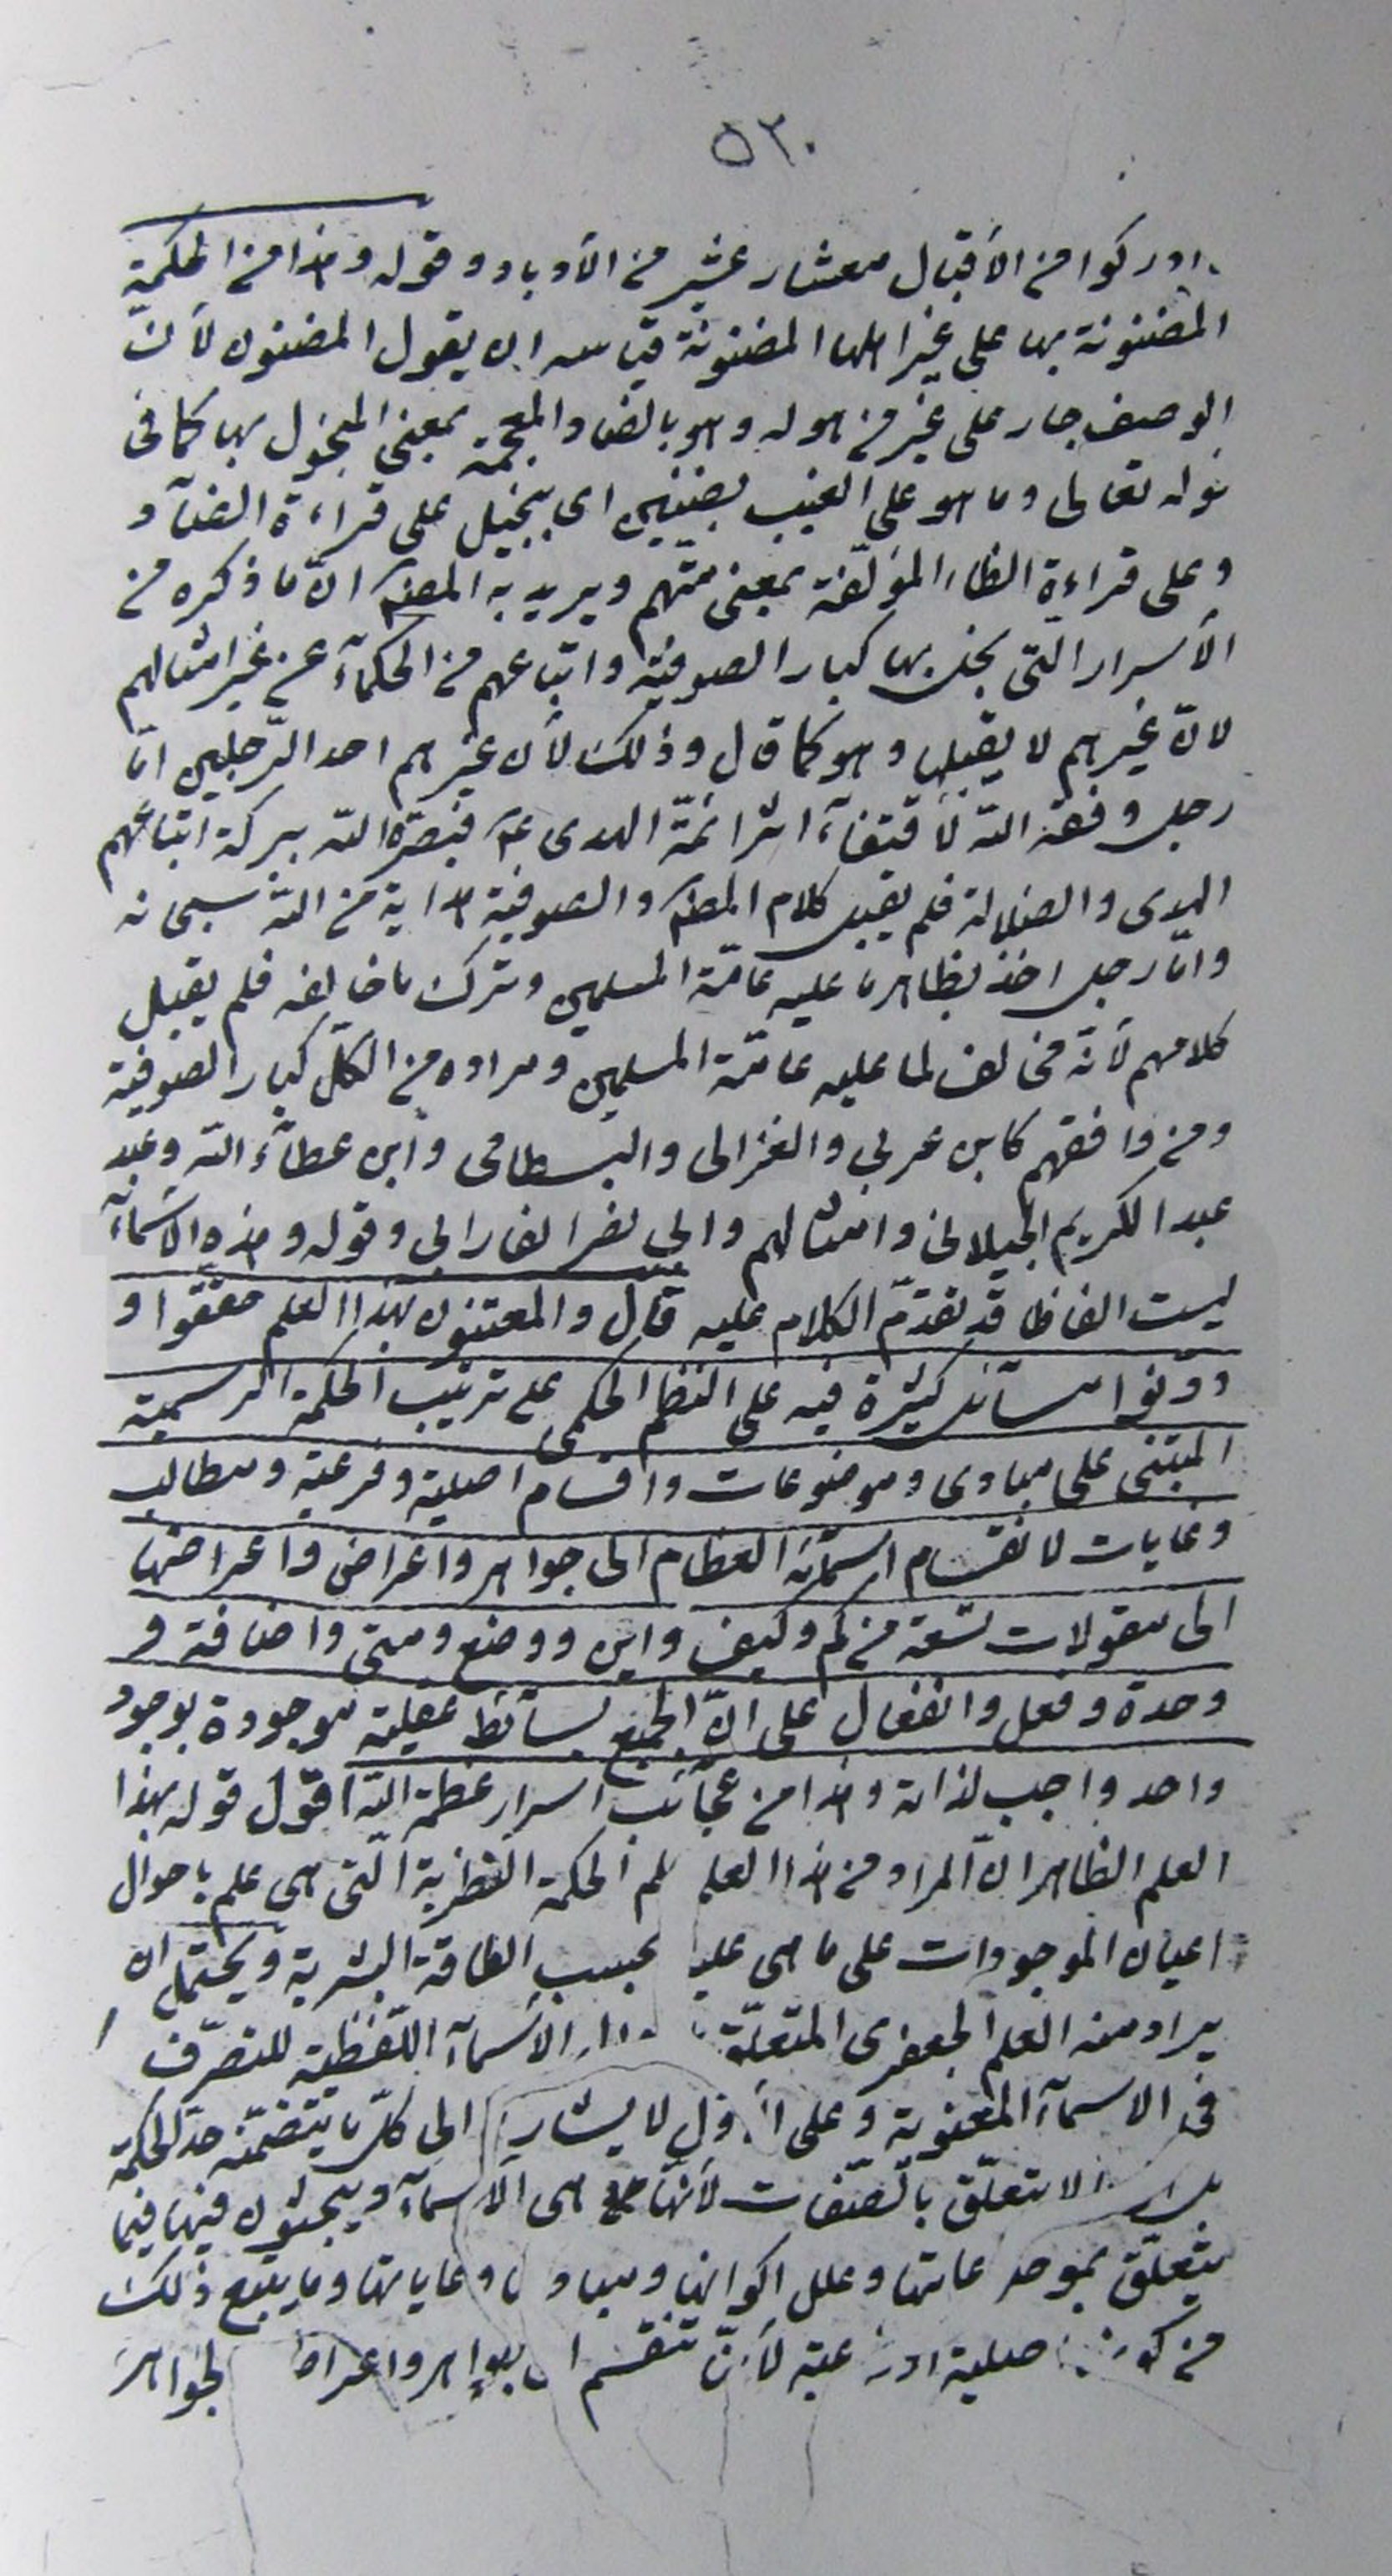 ٥٣٠
ادركوا من الأقبال معشار عشير من الأدبار و قوله و هذا من الحكمة
المضنونة بها على غير اهلها المضنونة قياسه ان يقول المضنون لأنّ
الوصف جار على غير من هو له و هو بالضاد المعجمة بمعنى المبخول بها كما فى
قوله تعالى و ما هو على الغيب بضنين اى ببخيل على قراءة الضآد
و على قراءة الظاء المؤلّفة بمعنى متّهم و يريد به المص انّ ما ذكره من
الأسرار الّتى بخل بها كبار الصوفيّة و اتباعهم من الحكمآء عن غير امثالهم
لانّ غيرهم لا يقبلها و هو كما قال و ذلك لأن غيرهم احد الرّجلين امّا
رجل وفقه اللّه لأقتفآء اثر ائمّة الهدى ع فبصّره اللّه ببركة اتباعهم
الهدى و الضلالة فلم يقبل كلام المص و الصوفية هداية من اللّه سبحانه
و امّا رجل اخذ بظاهر ما عليه عامّة المسلمين و ترك ما خالفه فلم يقبل
كلامهم لأنّه مخالف لما عليه عامّة المسلمين و مراده من الكلّ كبار الصوفية
و من وافقهم كابن عربي و الغزالى و البسطامى و ابن عطآء اللّه و عبد
عبد الكريم الجيلانى و امثالهم و ابى نصر الفارابى و قوله و هذه الاسمآء
ليست الفاظا قد تقدّم الكلام عليه قال و المعتنون بهذا العلم حققوا و
دوّنوا مسآئل كثيرة فيه على النظم الحكمى على ترتيب الحكمة الرسمية
المبتنى على مبادى و موضوعات و اقسام اصلية و فرعية و مطالب
و غايات لانقسام اسمآئه العظام الى جواهر و اعراض و اعراضها
الى مقولات تسعة من كم و كيف و اين و وضع و متى و اضافة و
وحدة و فعل و انفعال على انّ الجميع بسآئط عقلية موجودة بوجود
واحد واجب لذاته و هذا من عجآئب اسرار عظمة اللّه اقول قوله بهذا
العلم الظاهر انّ المراد من هذا العلم علم الحكمة النظرية الّتى هى علم باحوال
اعيان الموجودات على ما هى عليه بحسب الطاقة البشرية و يحتمل ان
يراد منه العلم الجعفرى المتعلّق الاسمآء اللّفظية للتصرّف
فى الاسمآء المعنوية و على الأوّل لا يشار الى كلّ ما يتضمّنه حدّ الحكمة
بل الا يتعلّق بالصّفات لأنّها هى الاسمآء و يبحثون فيها فيما
يتعلّق بموضوعاتها و علل اكوانها و مباديها و غاياتها و ما يتبع ذلك
من كونها اصلية او فرعية لأنّ تنقسم الى جواهر و اعراض الجواهر